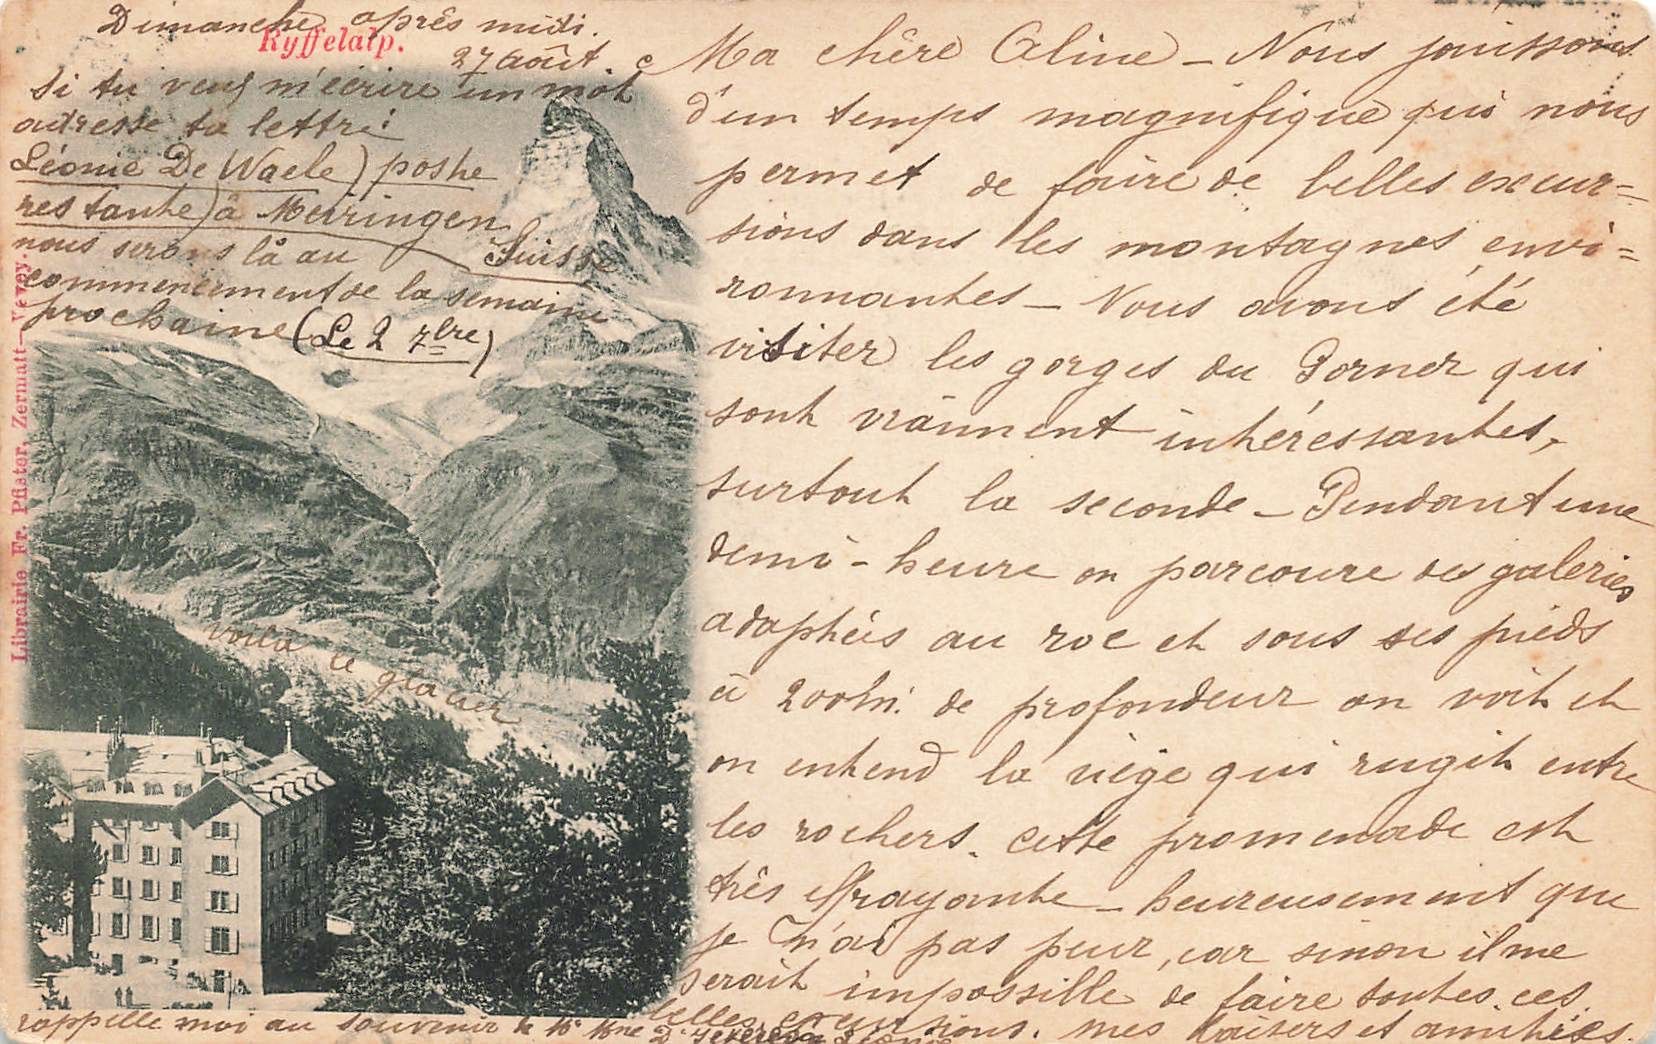 Dimanche après midi.
Ryffelalp.
27 août.
si tu veux m'écrire un mot
adresse ta lettre:
Léonie De Waele) poste
restante) à Meiringen
Suisse
nous serons là au
commencement de la semaine
prochaine (Le 2 7bre)
Librairie Fr. Pfister, Zermatt—Vevey.
voilà le
glacier
Ma chère Céline — Nous jouissons
d'un temps magnifique qui nous
permet de faire de belles excur=
sions dans les montagnes envi=
ronnantes — Nous avons été
visiter les gorges du Gorner qui
sont vraiment intéressantes,
surtout la seconde — Pendant une
demi-heure on parcoure des galeries
adaptées au roc et sous ses pieds
à 200m. de profondeur on voit et
on entend la viège qui rugit entre
les rochers. cette promenade est
très effrayante — heureusement que
je n'ai pas peur, car sinon il me
serait impossible de faire toutes ces
belles excursions. mes baisers et amitiés.
rappelle moi au souvenir de
Léonie